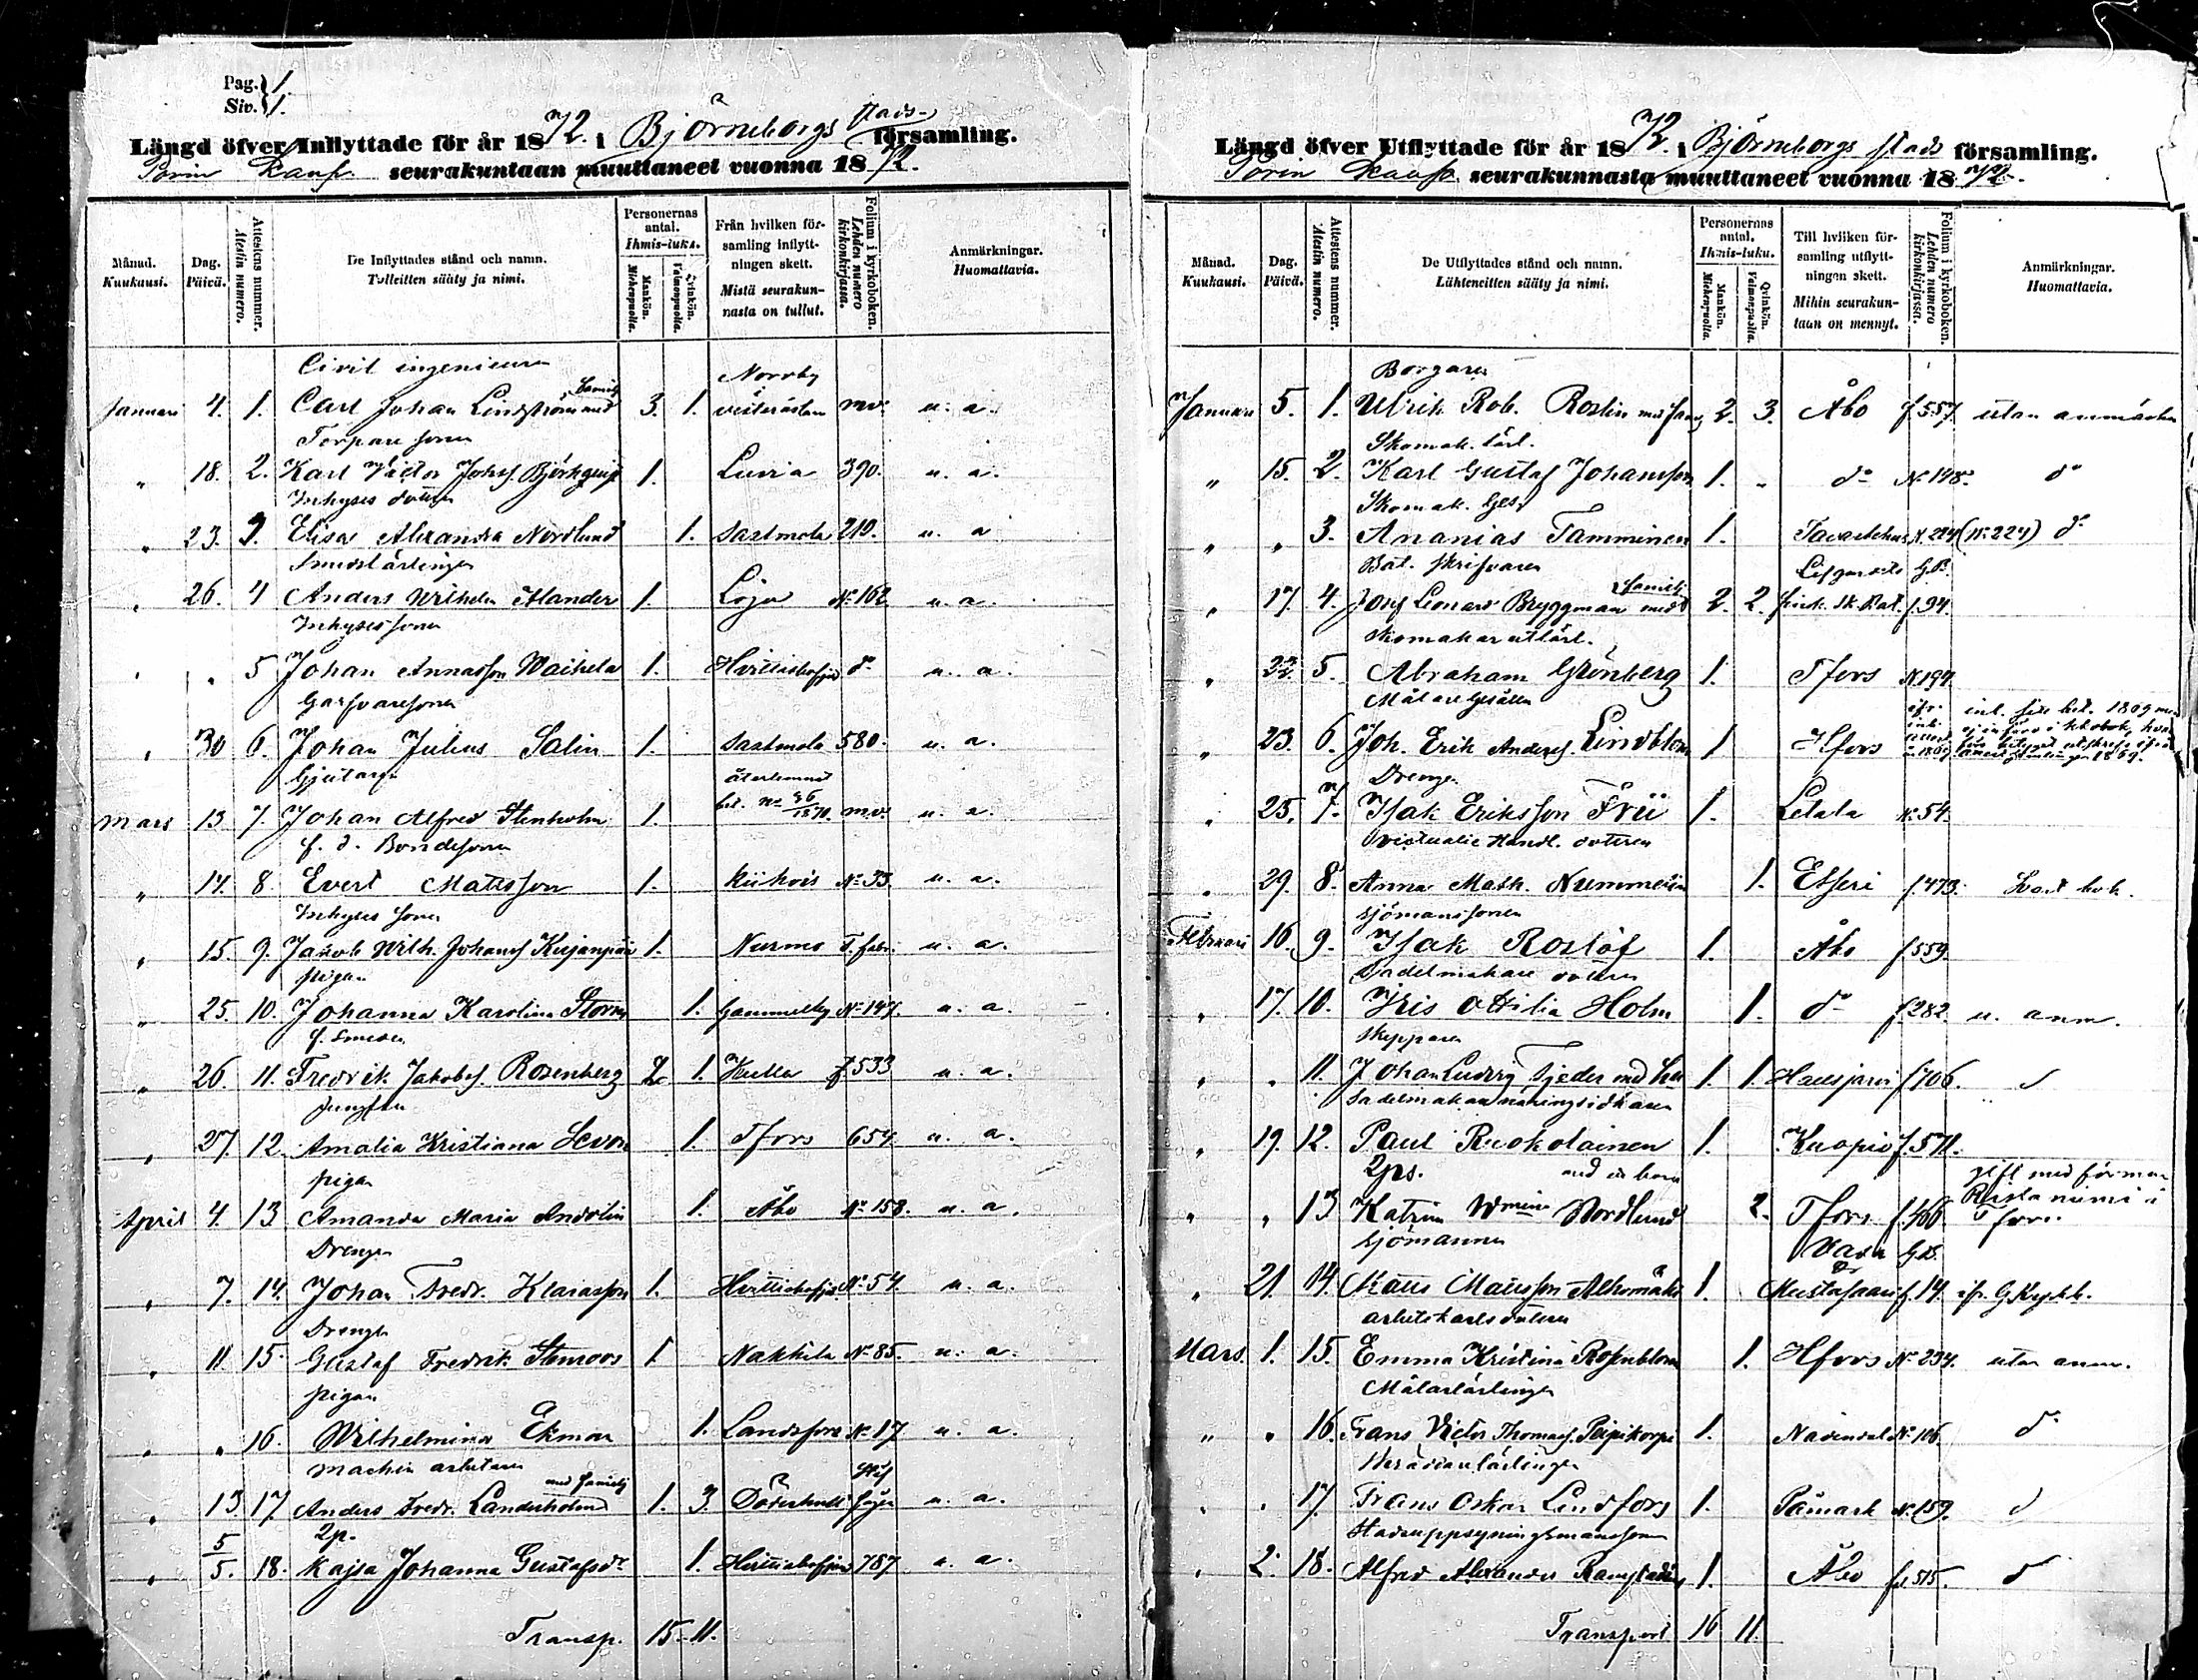 Pag. } 1.
Siv. } 1.
Längd öfver Inflyttade för år 1872. i Björneborgs stads församling.
Porin kaup. seurakuntaan muuttaneet vuonna 1872.
Månad. Kuukausi.
Dag. Päivä.
Attestens nummer. Atestin numero.
De Inflyttades stånd och namn. Tulleitten sääty ja nimi.
Personernas antal. Ihmis-luku.
Mankön. Miehenpuolia.
Qvinkön. Vaimonpuolia.
Från hvilken församling inflyttningen skett. Mistä seurakunnasta on tullut.
Folium i kyrkoboken. Lehden numero kirkonkirjassa.
Anmärkningar. Huomattavia.
Civil ingenieuren Norrby
Januari 4. 1. Carl Johan Lindström med familj 3. 1. mv. u. a.
Torpare sonen
" 18. 2. Karl Victor Johss. Björkqvist 1. Luvia 390. u. a.
Inhyses dottren
" 23. 3. Elisa Alexandra Nordlund 1. Sastmola 210. u. a
Smedslärlingen
" 26. 4 Anders Wilhelm Alander 1. Lojo No 162 u. a.
Inhyses sonen
" " 5 Johan Annasson Waihela 1. Hvittisbofjrd do u. a.
Garfvaresonen
" 30 6. Johan Julius Salin 1. Sastmola 580. u. a.
Gjutaren återlemnat
Mars 13. 7. Johan Alfred Stenholm 1. bet. No 96/1870. mv. u. a.
f. d. Bondesonen
" 14. 8. Evert Mattsson 1. Kiikois No 33. u. a.
Inhyses sonen
" 15. 9. Jakob Wilh. Johanss. Kujanpää 1. Nurmo T. fabr. u. a.
pigan
" 25. 10. Johanna Karolina Storm 1. Gammelby No 147. u. a.
f. Smeden
" 26. 11. Fredrik Jakobss. Rosenberg 2 1. Kulla f. 533 u. a.
Jungfru
" 27. 12. Amalia Kristiana Levon 1. Tfors 654. u. a.
pigan
April 4. 13 Amanda Maria Andolin 1. Åbo No 158. u. a.
Drengen
" 7. 14. Johan Fredr. Klaiasson 1. Hvittisbofjrd No 54. u. a.
Drengen
" 11 15. Gustaf Fredrik Stenroos 1. Nakkila No 85. u. a.
pigan
" " 16. Wilhelmina Ekman 1. Landsförs. No 17 u. a.
Machin arbetaren med familj
" 13. 17 Anders Fredr. Landerholm 1. 3. Döderhult u. a.
2p.
" 5/5. 18. Kajsa Johanna Gustafsdr 1. Hvittisbofjrd 787. u. a.
Transp. 15. 11.
Längd öfver Utflyttade för år 1872. i Björneborgs stads församling.
Porin kaup. seurakunnasta muuttaneet vuonna 1872.
Månad. Kuukausi.
Dag. Päivä.
Attestens nummer. Atestin numero.
De Utflyttades stånd och namn. Lähteneitten sääty ja nimi.
Personernas antal. Ihmis-luku.
Mankön. Miehenpuolia.
Qvinkön. Vaimonpuolia.
Till hvilken församling utflyttningen skett. Mihin seurakuntaan on mennyt.
Folium i kyrkoboken. Lehden numero kirkonkirjassa.
Anmärkningar. Huomattavia.
Borgaren
Januari 5. 1. Ulrik Rob. Roslin med fam. 2. 3. Åbo f. 557. utan anmärkn
Skomak. lärl.
" 15. 2. Karl Gustaf Johansson 1. " do No 148. do
Skomak. Ges.
" " 3. Ananias Tamminen 1. Tavastehus N. 224 (No 224) do
Bat. skrifvaren G.B.
" 17 4. Josef Leonard Bryggman med familj 2. 2. finsk. Sk. Bat. f. 94.
Skomakar utlärl.
" 22. 5. Abraham Grönberg 1. Tfors N. 197.
Målare Gesällen
" 23. 6. Joh. Erik Anderss. Lindblom 1 Hfors
Drengen
" 25. 7. Isak Eriksson Frii 1. Letala No 54.
Victualie Handl. dottren
" 29. 8. Anna Math. Nummelin 1. Etseri f. 473.
Sjömanssonen
Februari 16. 9. Isak Roslöf 1. Åbo f. 559.
Sadelmakare dottren
" 17. 10. Iris Ottilia Holm 1. do f. 282. u. anm.
Skepparen
" " 11. Johan Ludvig Tjeder med hu 1. 1. Hausjärvi f. 706. do
Sadelmakarenäringsidkaren
" 19. 12. Paul Ruokolainen 1. Kuopio f. 571.
2ps. med en barn gift med förman
" " 13 Katrina Wmina Nordlund 2. Tfors f. 466. i Tfors.
Sjömannen Vasa G.B.
" 21. 14. Matts Mattsson Alhomäki 1. Mustasaari f. 14.
arbetskarls dottren
Mars. 1. 15. Emma Kristina Rosenblom 1. Hfors No 234. utan anm.
Målarelärlingen
" " 16. Frans Victor Thomass. Peipikorpi 1. Nådendal No 106. do
" " 17. Frans Oskar Lindfors 1. Påmark No 159. do
Stadsuppsyningsmanssonen
" 2. 18. Alfred Alexander Ramstadius 1. Åbo f. 515. do
Transport 16 11.